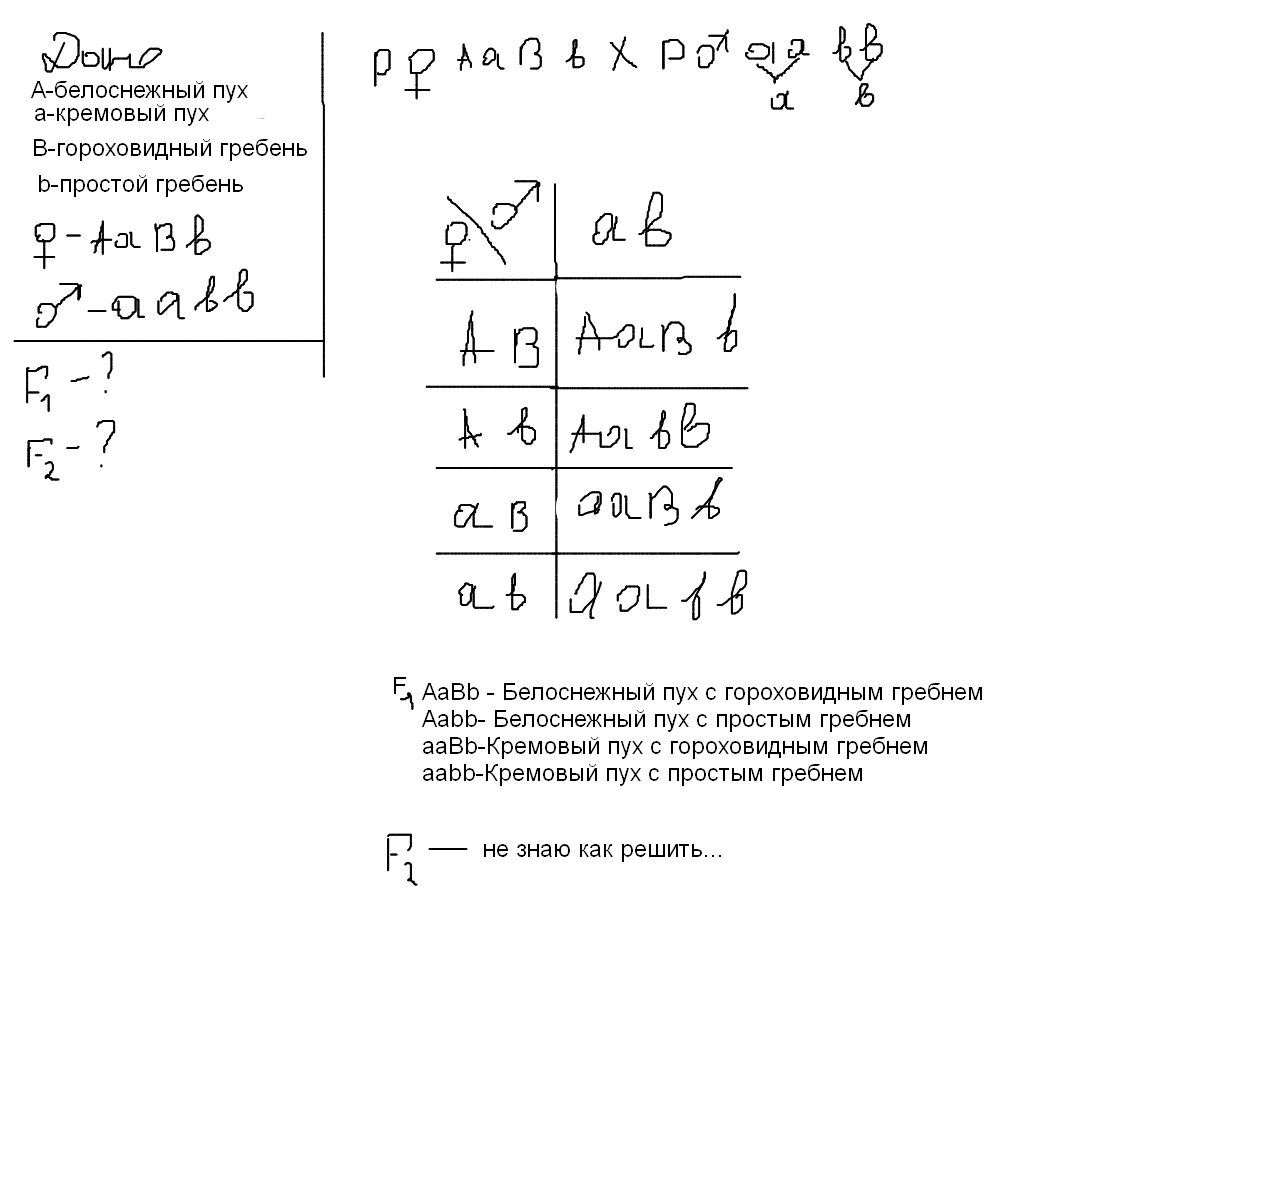 Дано
А-белоснежный пух
а-кремовый пух
В-гороховидный гребень
b-простой гребень
♀ - AaBb
♂ - aabb
F1 - ?
F2 - ?
P ♀ AaBb X P ♂ aa bb
a b
♀ \ ♂ ab
AB AaBb
Ab Aabb
aB aaBb
ab aabb
F1 AaBb - Белоснежный пух с гороховидным гребнем
Aabb- Белоснежный пух с простым гребнем
aaBb-Кремовый пух с гороховидным гребнем
aabb-Кремовый пух с простым гребнем
F2 — не знаю как решить...